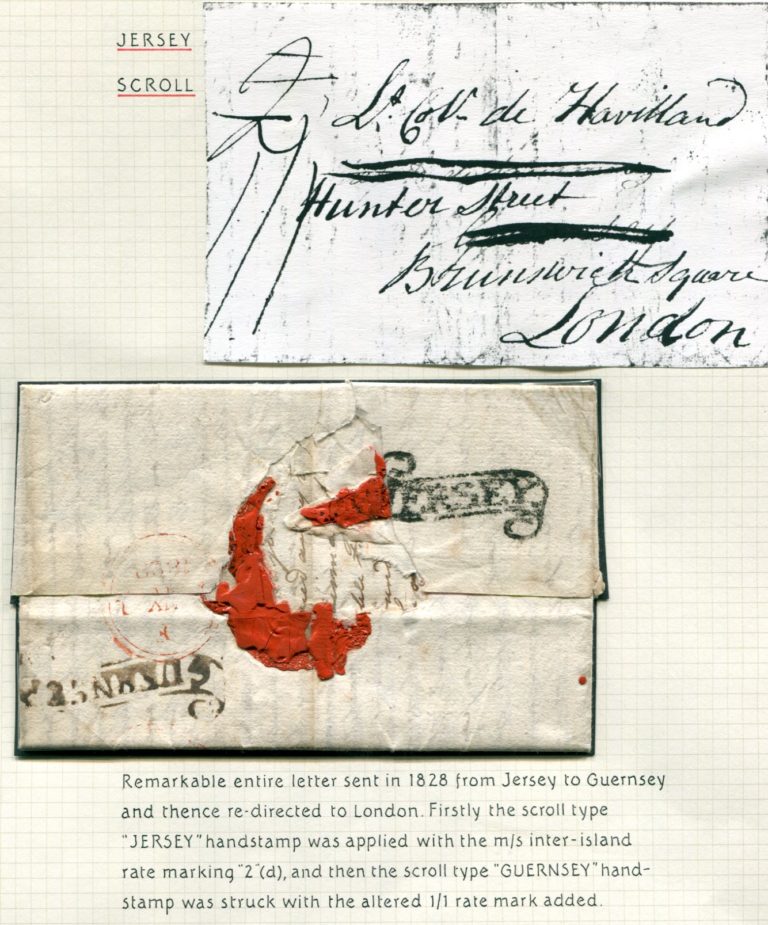 JERSEY
SCROLL
2
1/1
Lt. Col. de Havilland
Hunter Street
Brunswick Square
London
JERSEY
GUERNSEY
Remarkable entire letter sent in 1828 from Jersey to Guernsey
and thence re-directed to London. Firstly the scroll type
"JERSEY" handstamp was applied with the m/s inter-island
rate marking "2"(d), and then the scroll type "GUERNSEY" hand-
stamp was struck with the altered 1/1 rate mark added.